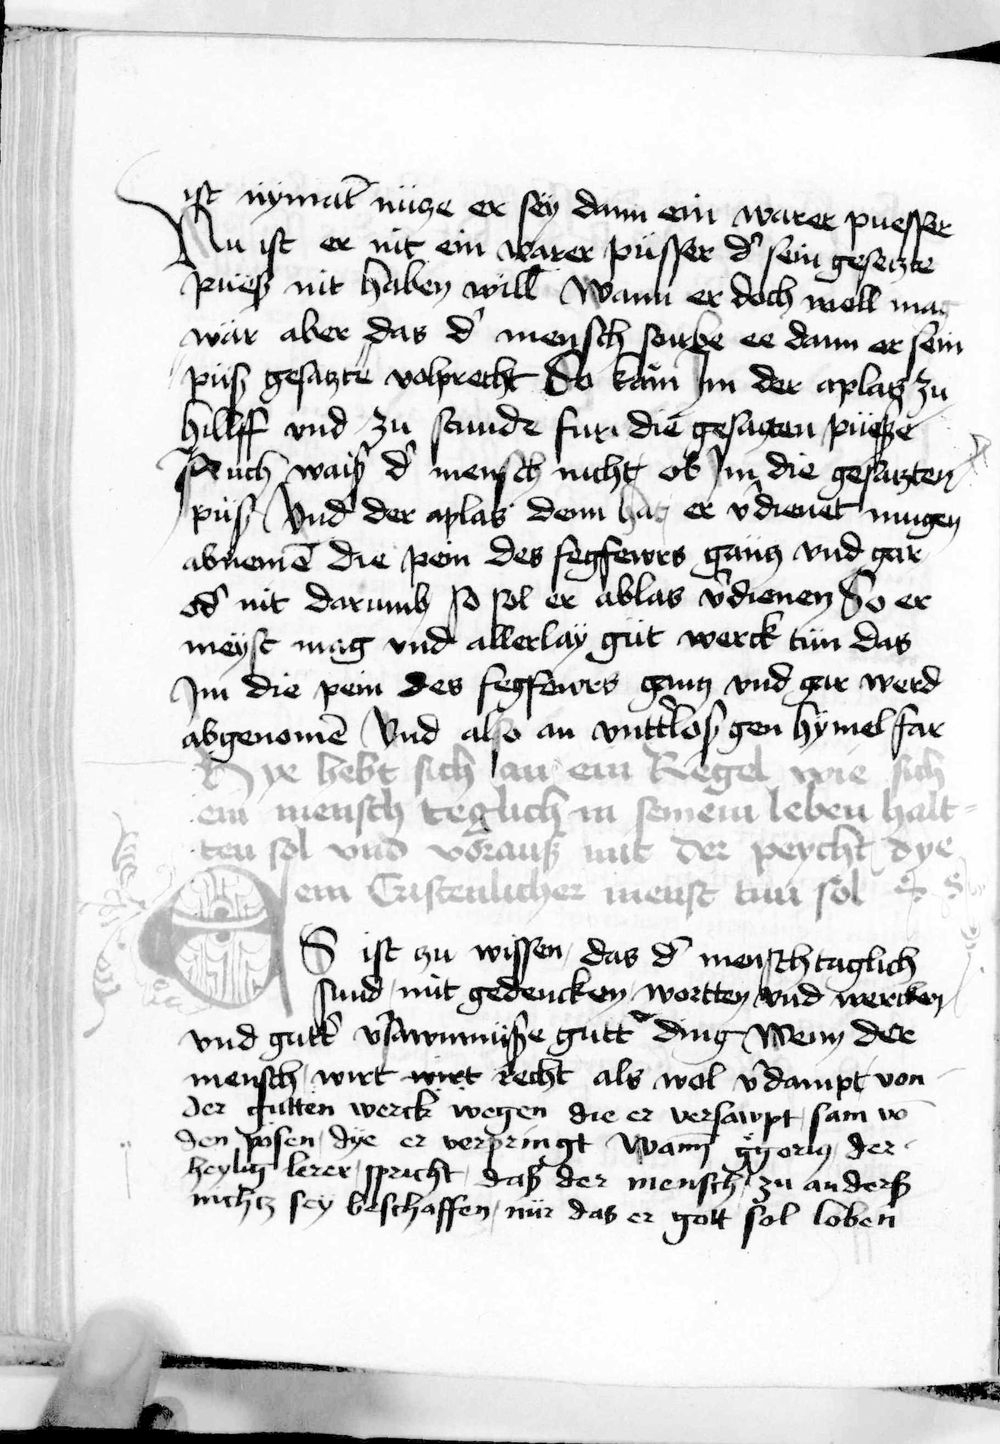 ist nÿmāt nücze er seÿ dann ein warer puesser
Nu ist er nit ein warer püsser d' sein gesetzte
püeß nit haben will Wann er doch woll mag
wär aber das d' mensch sturbe ee dann er sein
püß gesatzte volprecht So käm Jm der aplas zu
hillff vnd zu stunde fur die gesatzten püesse
Auch waiß d' mensch nicht ob Jm die gesatzten
püß Vnd der aplas denn hat er v'dienet mugen
abnemē die pein des fegfewrs gancz vnd gar
od' nit darumb so sol er ablas v'dienen So er
meÿst mag vnd allerlaÿ güt werck tün das
Jm die pein des fegfewrs gancz vnd gar werd
abgenomē Vnd also an vnt'loß gen hÿmel far
Hye hebt sich an ein Regel wie sich
ein mensch teglich in seinem leben halt-
ten sol vnd vorauß mit der peycht dye
ein Cristenlicher mensch tun sol
ES ist zu wissen das d' mensch taglich
sund mit gedencken wortten vnd wercken
vnd gutt' v'sawmnüsse gutt' ding Wenn der
mensch wirt wirt recht als wol v'dampt von
der gutten werck wegen die er versawpt sam vō
den pösen dÿe er verpringt Wann gregorius der
heylig lerer spricht daß der mensch zu anderß
nichtz sey beschaffen nür das er gott sol loben